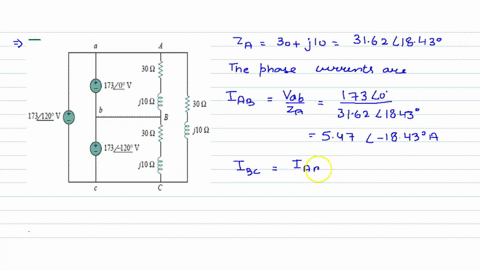 ⇒
a A
30 Ω
173/0° V
j10 Ω
30 Ω
b B
173/120° V
30 Ω
j10 Ω
173/-120° V
j10 Ω
c C
Z_A = 30 + j10 = 31.62 ∠18.43°
The phase currents are
I_AB = Vab/Z_A = 173∠0°/31.62∠18.43°
= 5.47 ∠-18.43° A
I_BC = I_AB